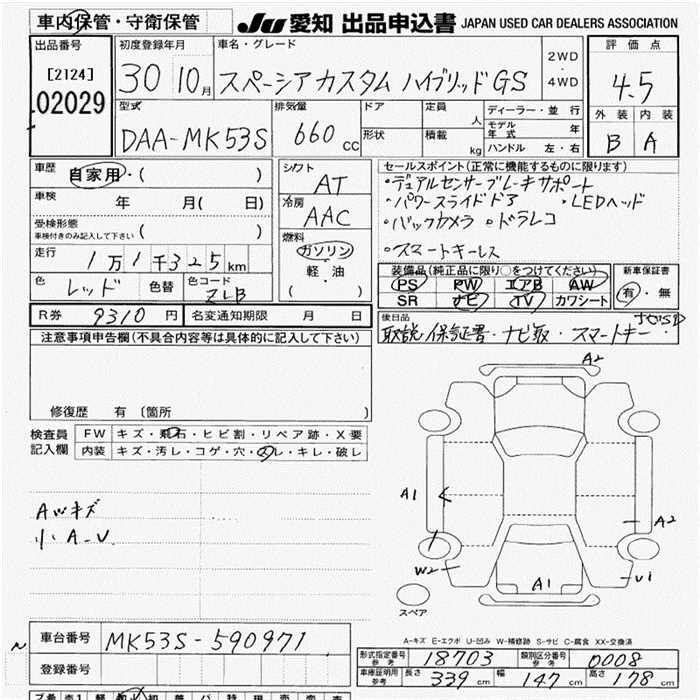 車内保管・守衛保管
JU 愛知 出品申込書 JAPAN USED CAR DEALERS ASSOCIATION
出品番号
[2124]
02029
初度登録年月
30 10月
車名・グレード
スペーシアカスタム ハイブリッドGS
2WD
・
4WD
評価点
4.5
外装 内装
B A
型式
DAA-MK53S
排気量
660 cc
ドア
形状
定員
人
積載
kg
ディーラー・並行
モデル年式 年
ハンドル 左・右
車歴
自家用・( )
車検
年 月( 日)
受検形態
車検付きのみ記入して下さい ( )
走行
1万1千325km
色
レッド
色替
色コード
ZLB
シフト
AT
冷房
AAC
燃料
ガソリン
・
軽・油
( )
セールスポイント(正常に機能するものに限ります)
・デュアルセンサーブレーキサポート
・パワースライドドア ・LEDヘッド
・バックカメラ ・ドラレコ
・スマートキーレス
装備品(純正品に限り○をつけてください)
PS PW エアB AW
SR ナビ TV カワシート
新車保証書
有・無
R券 9310 円
名変通知期限 月 日
後日品
取説 保証書・ナビ取・スマートキー・
注意事項申告欄(不具合内容等は具体的に記入して下さい)
修復歴 有 (箇所 )
検査員
記入欄
FW キズ・飛石・ヒビ割・リペア跡・X要
内装 キズ・汚レ・コゲ・穴・スレ・キレ・破レ
Aッキズ
小A-U
A2
A1
A2
W2
U1
A1
スペア
A-キズ E-エクボ U-凹み W-補修跡 S-サビ C-腐食 XX-交換済
車台番号 MK53S-590971
登録番号
形式指定番号
参考
18703
類別区分番号
参考
0008
車庫証明用
参考
長さ 339cm
幅 147cm
高さ 178cm